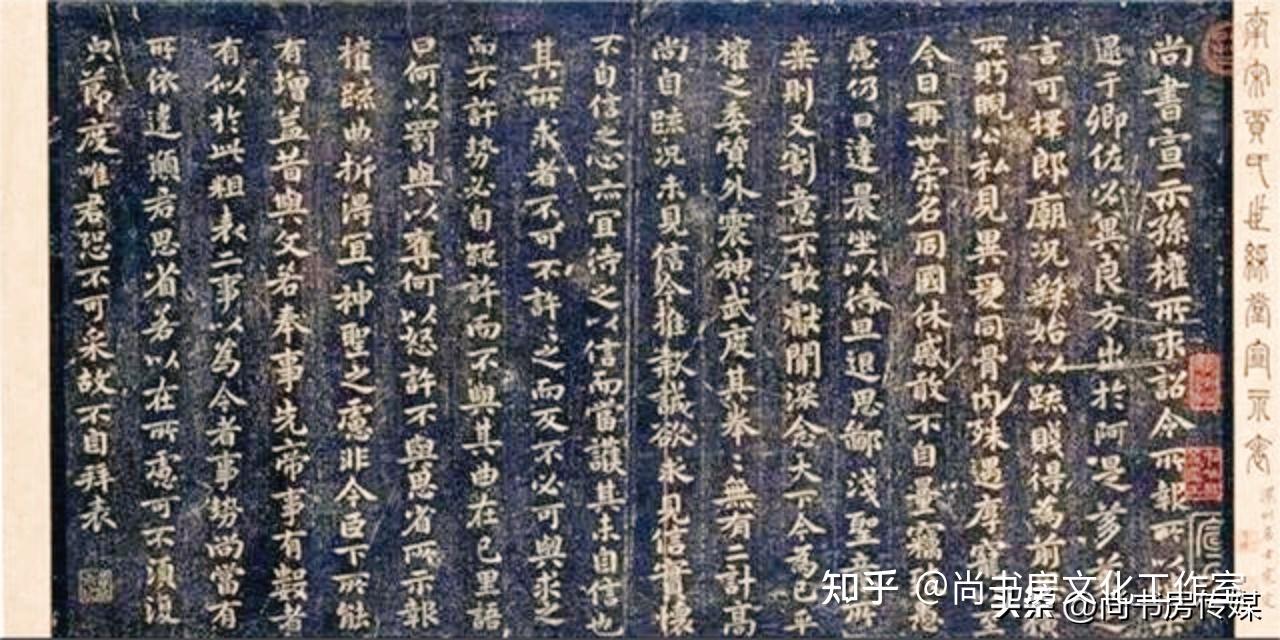 南宋賈氏世綵堂宣示表
尚書宣示孫權所求詔令所報所以
逮于卿佐必冀良方出於阿是芻
言可擇郎廟況繇始以疏賤得為前
所眄睨公私見異愛同骨肉殊遇厚寵至
今日再世榮名同國休慼敢不自量竊愚
慮仍日達晨坐以待旦退思鄙淺聖意所
棄則又割意不敢獻聞深念天下今為已平
權之委質外震神武度其拳〻無有二計高
尚自疏況未見信今推款誠欲求見信實懷
不自信之心亦宜待之以信而當護其未自信也
其所求者不可不許〻之而反不必可與求之
而不許勢必自絕許而不與其曲在己里語
曰何以罰與以奪何以怒許不與思省所示報
權疏曲折得宜〻神聖之慮非今臣下所能
有增益昔與文若奉事先帝事有數者
有似於此粗表二事以為今者事勢尚當有
所依違願君思省若以在所慮可不須復
節度唯君恐不可采故不自拜表
知乎 @尚书房文化工作室
头条 @尚书房传媒